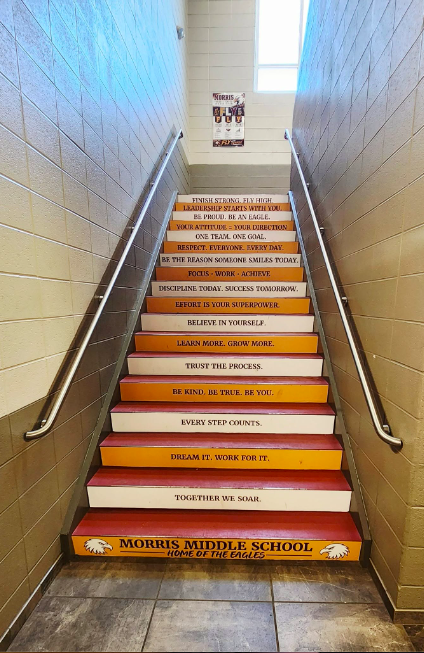 MORRIS
FLY
FINISH STRONG. FLY HIGH.
LEADERSHIP STARTS WITH YOU.
BE PROUD. BE AN EAGLE.
YOUR ATTITUDE = YOUR DIRECTION
ONE TEAM. ONE GOAL.
RESPECT. EVERYONE. EVERY DAY.
BE THE REASON SOMEONE SMILES TODAY.
FOCUS • WORK • ACHIEVE
DISCIPLINE TODAY. SUCCESS TOMORROW.
EFFORT IS YOUR SUPERPOWER.
BELIEVE IN YOURSELF.
LEARN MORE. GROW MORE.
TRUST THE PROCESS.
BE KIND. BE TRUE. BE YOU.
EVERY STEP COUNTS.
DREAM IT. WORK FOR IT.
TOGETHER WE SOAR.
MORRIS MIDDLE SCHOOL
HOME OF THE EAGLES